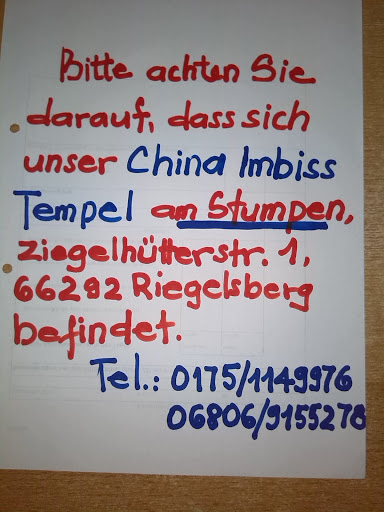 Bitte achten Sie
darauf, dass sich
unser China Imbiss
Tempel am Stumpen,
Ziegelhütterstr. 1,
66292 Riegelsberg
befindet.
Tel.: 0175/1149976
06806/9155278